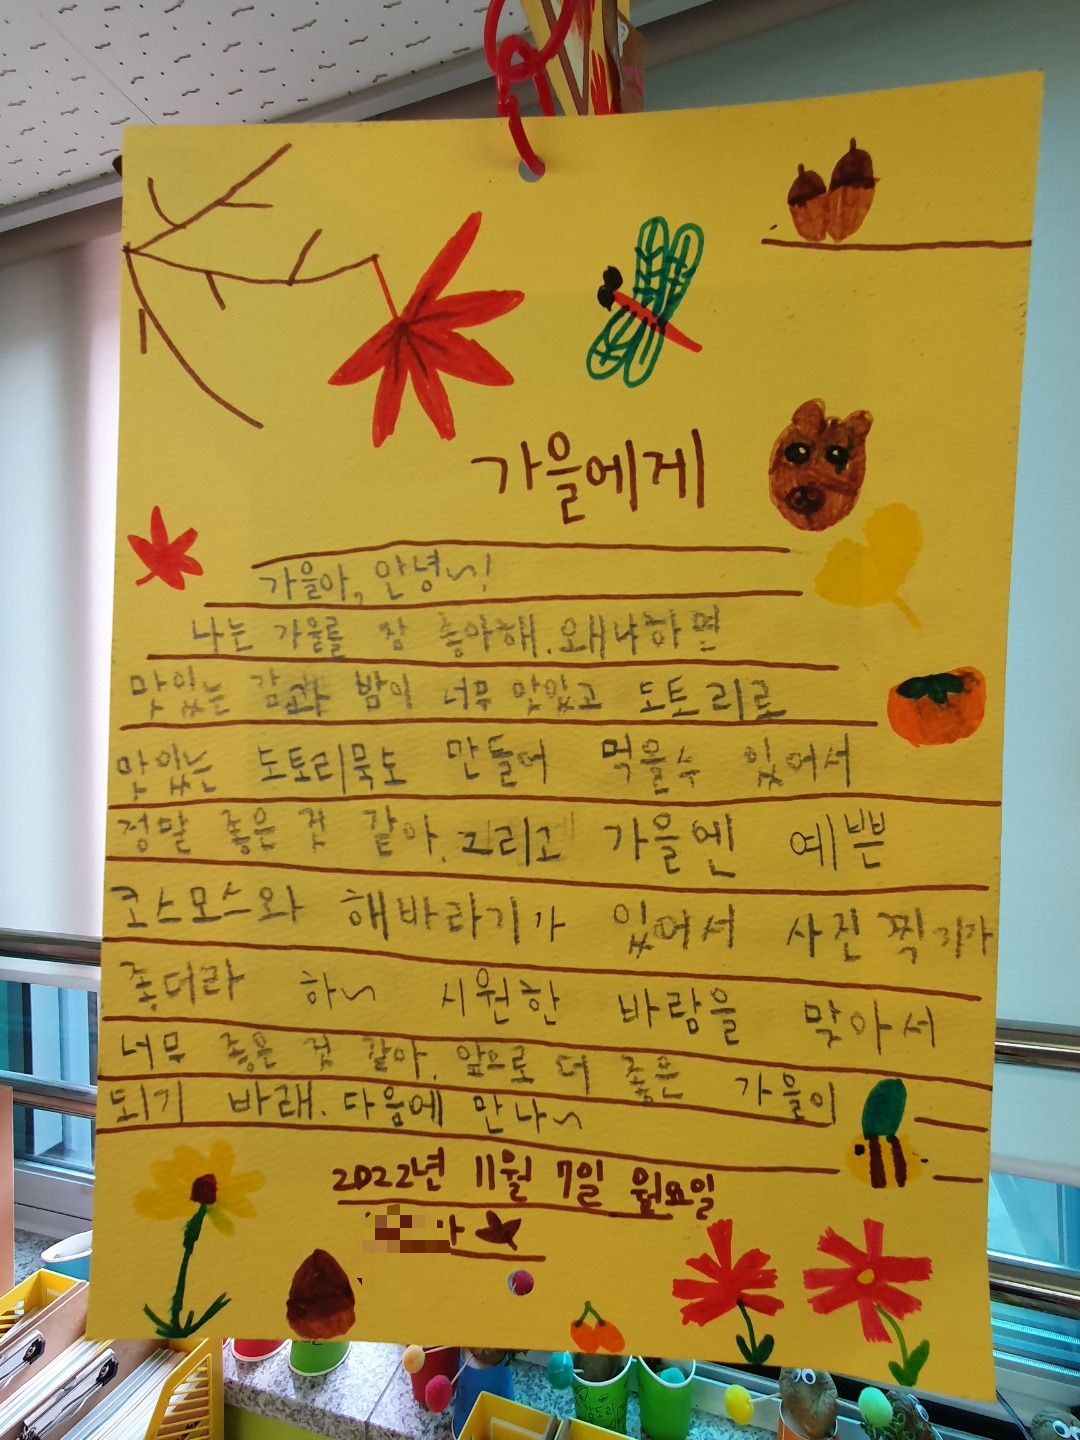 가을에게
가을아, 안녕~!
나는 가을을 참 좋아해. 왜냐하면
맛있는 감과 밤이 너무 맛있고 도토리로
맛있는 도토리묵도 만들어 먹을수 있어서
정말 좋은 것 같아. 그리고 가을엔 예쁜
코스모스와 해바라기가 있어서 사진 찍기가
좋더라 하~ 시원한 바람을 맞아서
너무 좋은 것 같아. 앞으로 더 좋은 가을이
되기 바래. 다음에 만나~
2022년 11월 7일 월요일